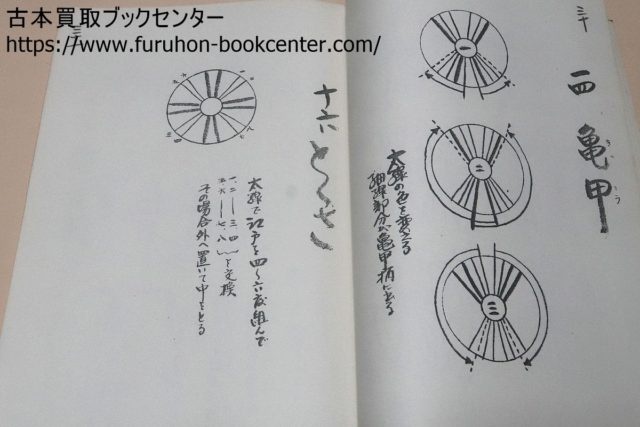 古本買取ブックセンター
https://www.furuhon-bookcenter.com/
三十
亀甲
一
二
三
太線の色を変える
細線部分が亀甲柄になる
十六とくさ
太線で江戸を四〜六度組んで
一、二——三、四
五、六——七、八 を交換
その場合外へ置いて中をとる